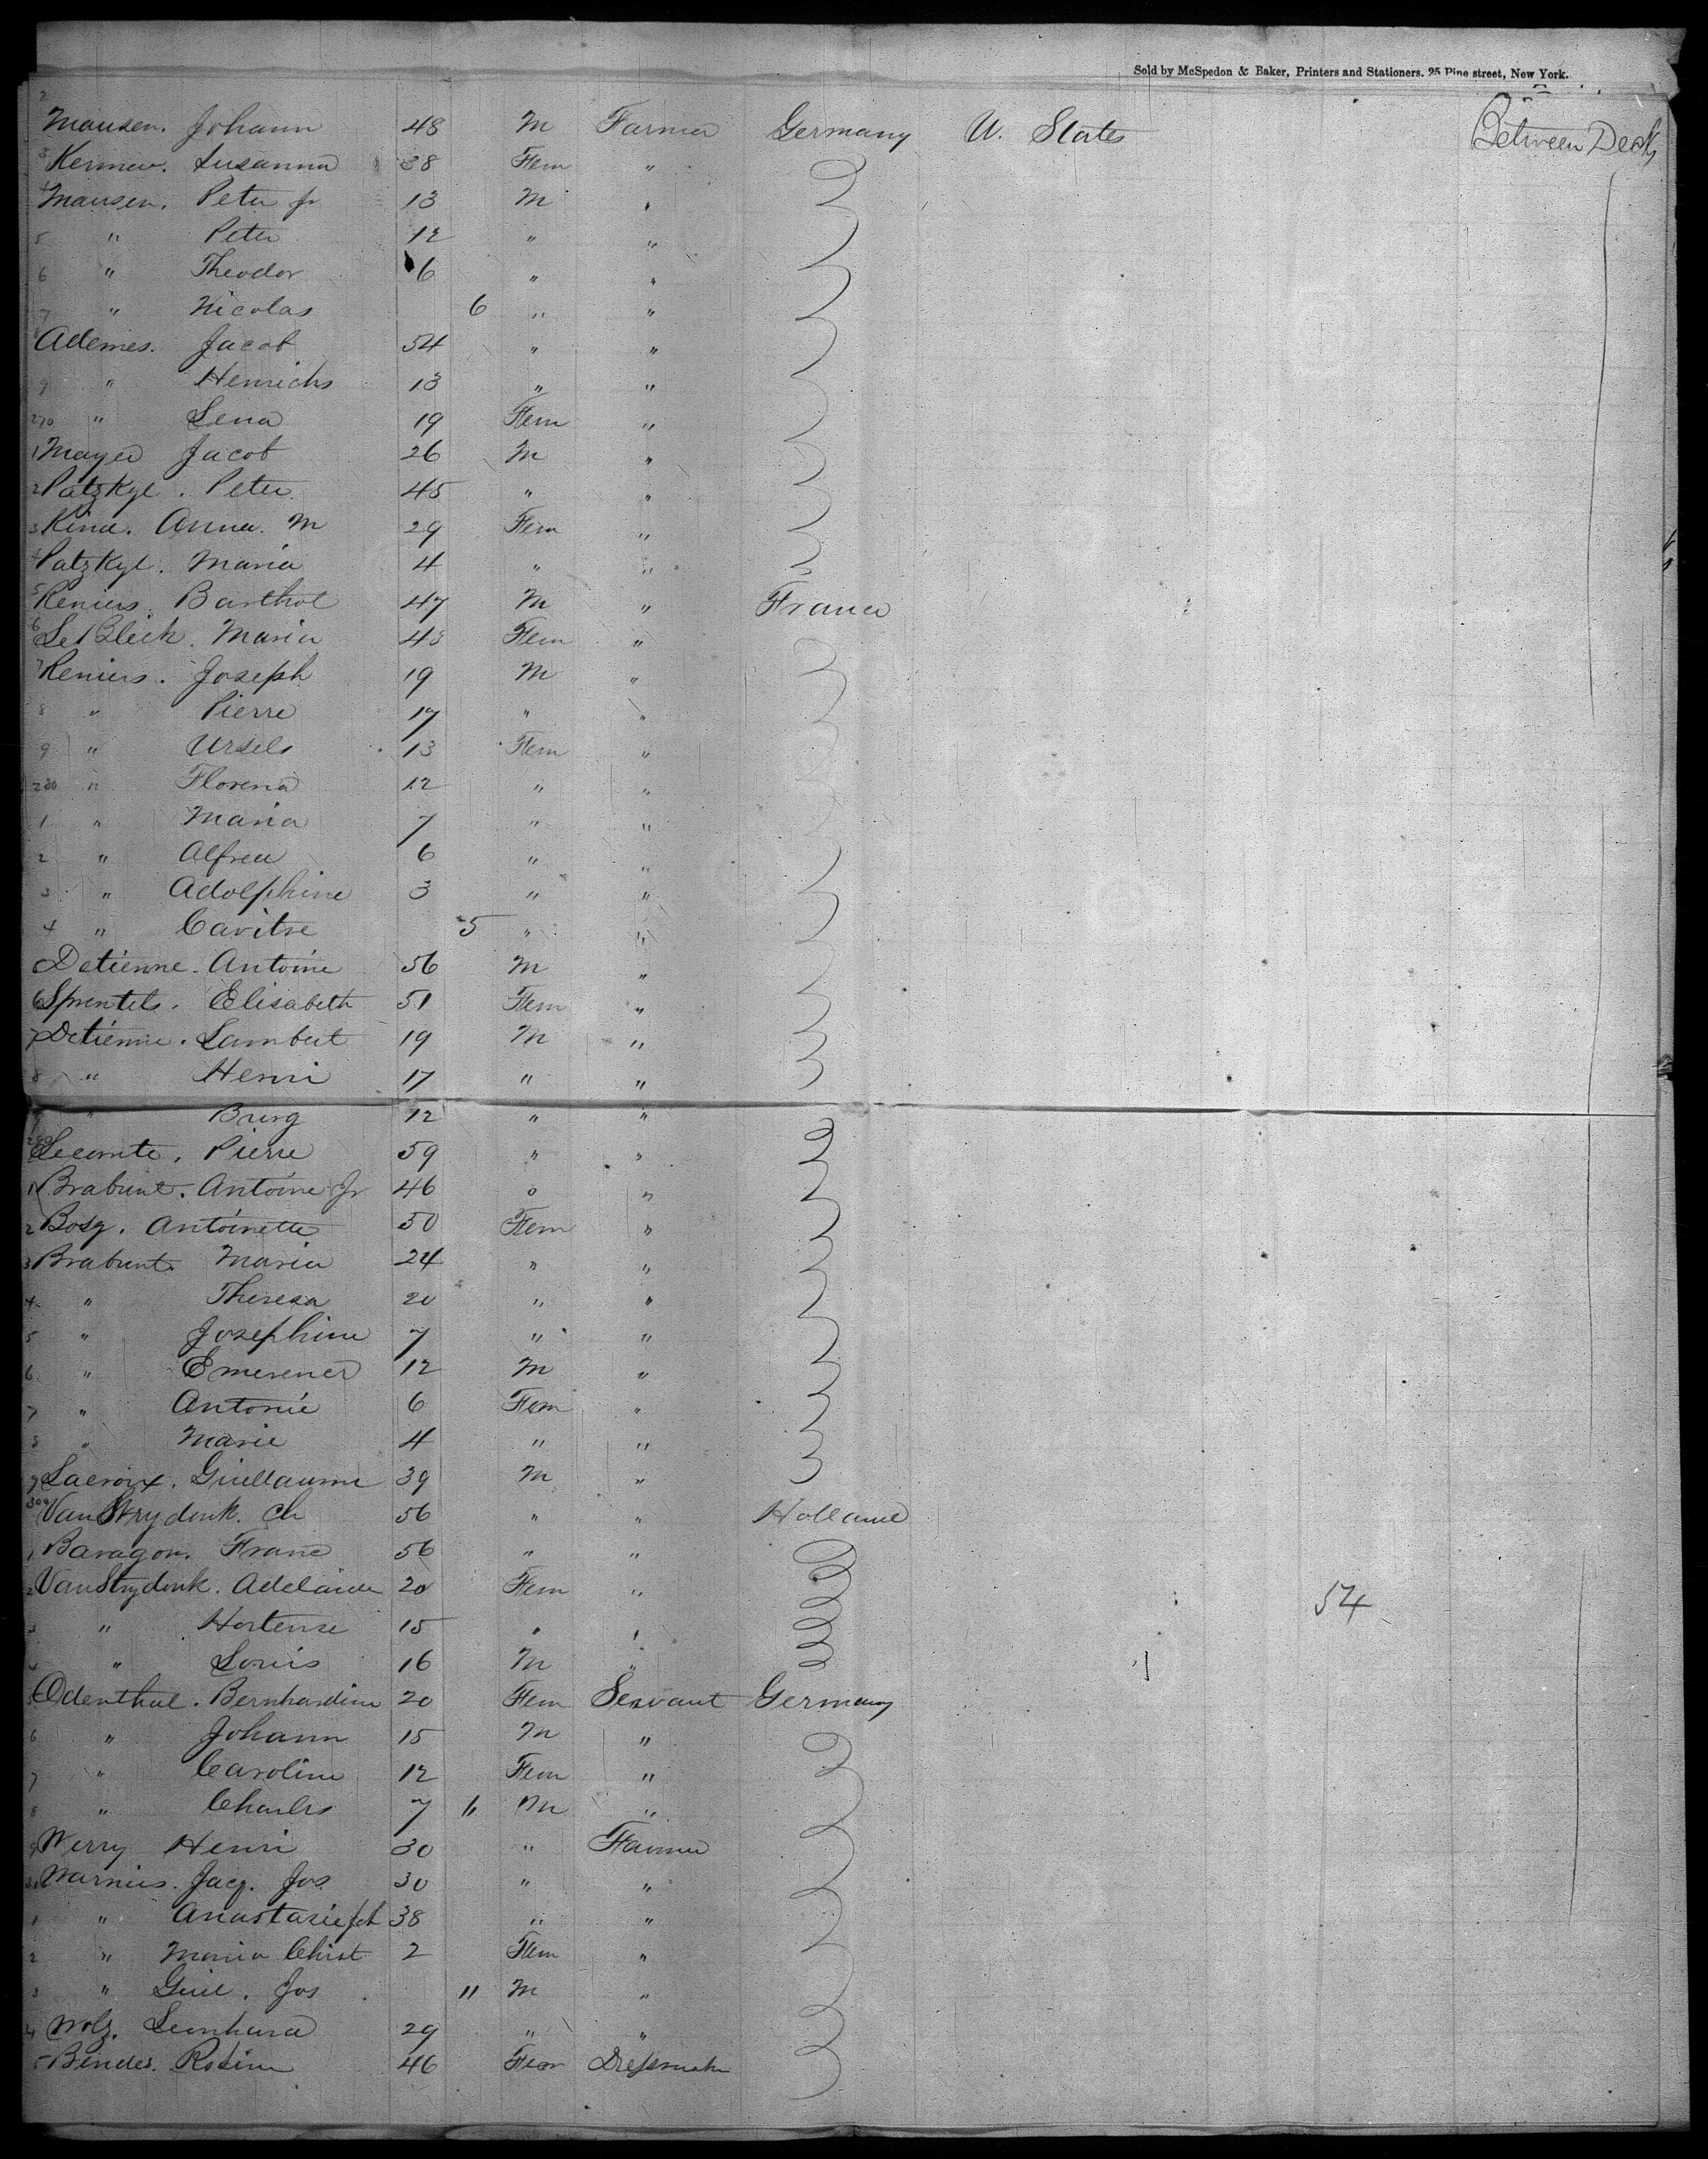 Sold by McSpedon & Baker, Printers and Stationers. 25 Pine street, New York.
2 Mausen. Johann 48 M Farmer Germany U. States Between Decks
3 Susanna 38 Fem "
4 Mausen. Peter jr 13 M "
5 " Peter 12 " "
6 " Theodor 6 " "
7 " Nicolas 6 " "
8 Ademes. Jacob 54 " "
9 " Henrichs 13 " "
270 " Lena 19 Fem "
1 Mayer Jacob 26 M "
2 Patzkyl. Peter 45 " "
3 Anna. M 29 Fem "
4 Patzkyl. Maria 4 " "
5 Reniers. Barthol 47 M " France
6 Maria 43 Fem "
7 Reniers. Joseph 19 M "
8 " Pierre 17 " "
9 " Ursels 13 Fem "
280 " Florena 12 " "
1 " Maria 7 " "
2 " 6 " "
3 " Adolphine 3 " "
4 " Cavitse 5 " "
Detienne. Antoine 56 M "
6 Sprentels. Elisabeth 51 Fem "
7 Detienne. Lambert 19 M "
8 " Henri 17 " "
9 " 12 " "
290 Lecomte. Pierre 59 " "
1 Brabant. Antoine Jr 46 " "
2 Bosq. Antoinette 50 Fem "
3 Brabant. Maria 24 " "
4 " Theresa 20 " "
5 " Josephine 7 " "
6 " 12 M "
7 " Antonie 6 Fem "
8 " Marie 4 " "
9 Lacroix. Guillaume 39 M "
300 VanStrydonk. Ch 56 " " Holland
1 Baragon. Franc 56 " "
2 VanStrydonk. Adelaide 20 Fem " 54
3 " Hortense 15 " "
4 " Louis 16 M " 1
5 Odenthal. Bernhardine 20 Fem Servant Germany
6 " Johann 15 M "
7 " Caroline 12 Fem "
8 " Charles 7 " M "
9 Werry Henri 30 " Farmer
Warnies. Jacq. Jos 30 " "
1 " Anastasie 38 " "
2 " Maria Christ 2 Fem "
3 " Guil. Jos 11 M "
4 Wolz. Leonhard 29 " "
5 Bindes. Rosine 46 Fem Dressmaker